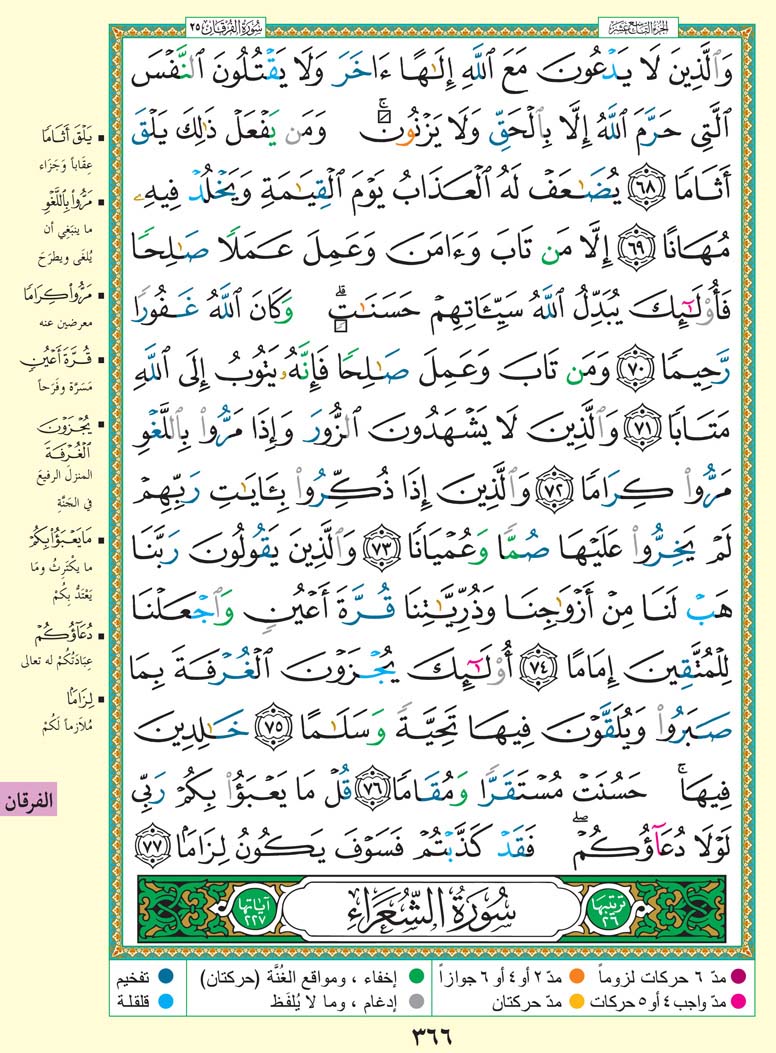 الجزء التاسع عشر
سورة الفرقان ٢٥
وَٱلَّذِينَ لَا يَدْعُونَ مَعَ ٱللَّهِ إِلَٰهًا ءَاخَرَ وَلَا يَقْتُلُونَ ٱلنَّفْسَ
ٱلَّتِى حَرَّمَ ٱللَّهُ إِلَّا بِٱلْحَقِّ وَلَا يَزْنُونَ ۚ وَمَن يَفْعَلْ ذَٰلِكَ يَلْقَ
أَثَامًا ٦٨ يُضَٰعَفْ لَهُ ٱلْعَذَابُ يَوْمَ ٱلْقِيَٰمَةِ وَيَخْلُدْ فِيهِۦ
مُهَانًا ٦٩ إِلَّا مَن تَابَ وَءَامَنَ وَعَمِلَ عَمَلًا صَٰلِحًا
فَأُو۟لَٰٓئِكَ يُبَدِّلُ ٱللَّهُ سَيِّـَٔاتِهِمْ حَسَنَٰتٍ ۗ وَكَانَ ٱللَّهُ غَفُورًا
رَّحِيمًا ٧٠ وَمَن تَابَ وَعَمِلَ صَٰلِحًا فَإِنَّهُۥ يَتُوبُ إِلَى ٱللَّهِ
مَتَابًا ٧١ وَٱلَّذِينَ لَا يَشْهَدُونَ ٱلزُّورَ وَإِذَا مَرُّوا۟ بِٱللَّغْوِ
مَرُّوا۟ كِرَامًا ٧٢ وَٱلَّذِينَ إِذَا ذُكِّرُوا۟ بِـَٔايَٰتِ رَبِّهِمْ
لَمْ يَخِرُّوا۟ عَلَيْهَا صُمًّا وَعُمْيَانًا ٧٣ وَٱلَّذِينَ يَقُولُونَ رَبَّنَا
هَبْ لَنَا مِنْ أَزْوَٰجِنَا وَذُرِّيَّٰتِنَا قُرَّةَ أَعْيُنٍ وَٱجْعَلْنَا
لِلْمُتَّقِينَ إِمَامًا ٧٤ أُو۟لَٰٓئِكَ يُجْزَوْنَ ٱلْغُرْفَةَ بِمَا
صَبَرُوا۟ وَيُلَقَّوْنَ فِيهَا تَحِيَّةً وَسَلَٰمًا ٧٥ خَٰلِدِينَ
فِيهَا ۚ حَسُنَتْ مُسْتَقَرًّا وَمُقَامًا ٧٦ قُلْ مَا يَعْبَؤُا۟ بِكُمْ رَبِّى
لَوْلَا دُعَآؤُكُمْ ۖ فَقَدْ كَذَّبْتُمْ فَسَوْفَ يَكُونُ لِزَامًۢا ٧٧
ترتيبها ٢٦
سُورَةُ الشُّعَرَاءِ
آياتها ٢٢٧
▪ يَلْقَ أَثَامًا
عِقَاباً وَجَزَاء
▪ مَرُّوا۟ بِٱللَّغْوِ
ما ينبَغِي أن
يُلغَى ويطرَحَ
▪ مَرُّوا۟ كِرَامًا
معرضين عنه
▪ قُرَّةَ أَعْيُنٍ
مَسَرَّة وفَرَحاً
▪ يُجْزَوْنَ
ٱلْغُرْفَةَ
المنزلَ الرفيعَ
في الجَنَّةِ
▪ مَا يَعْبَؤُا۟ بِكُمْ
ما يكْتَرِثُ ومَا
يَعْتَدُّ بِكُمْ
▪ دُعَآؤُكُمْ
عِبَادَتُكُمْ له تعالى
▪ لِزَامًا
مُلَازِماً لَكُمْ
الفرقان
مدّ ٦ حركات لزوماً
مدّ ٢ أو ٤ أو ٦ جوازاً
إخفاء ، ومواقع الغُنَّة (حركتان)
تفخيم
مدّ واجب ٤ أو ٥ حركات
مدّ حركتان
إدغام ، وما لا يُلفَظ
قلقلة
٣٦٦